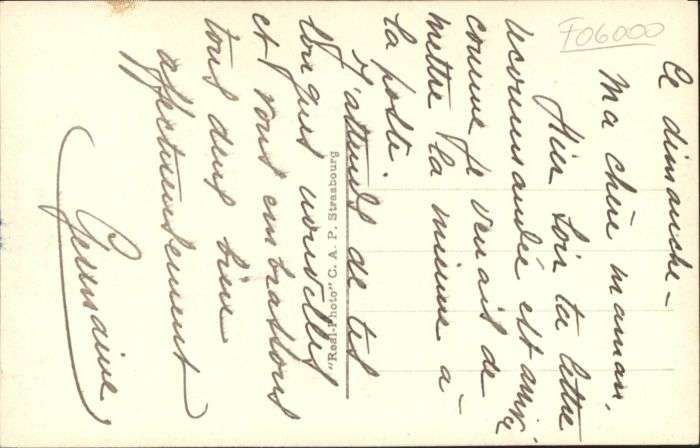 Ce dimanche –
Ma chère maman,
Hier soir ta lettre
recommandée est arrivée
comme je venais de
mettre la mienne à
la poste.
J'attends de tes
longues nouvelles
et vous embrassons
tous deux bien
affectueusement
Germaine
"Real-Photo" C. A. P. Strasbourg
F06000